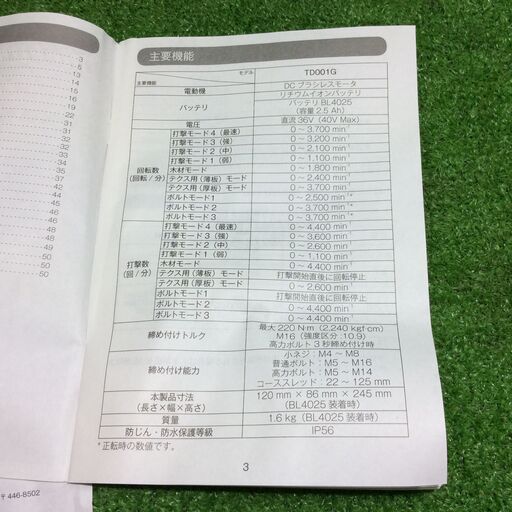 3
5
13
14
15
16
19
22
31
31
34
35
37
42
42
43
44
45
46
48
49
50
50
〒446-8502
主要機能
モデル
主要機能
TD001G
電動機
DCブラシレスモータ
バッテリ
リチウムイオンバッテリ
バッテリ BL4025
(容量 2.5 Ah)
電圧
直流 36V (40V Max)
回転数
(回転/分)
打撃モード4 (最速)
0 ~ 3,700 min⁻¹
打撃モード3 (強)
0 ~ 3,200 min⁻¹
打撃モード2 (中)
0 ~ 2,100 min⁻¹
打撃モード1 (弱)
0 ~ 1,100 min⁻¹
木材モード
0 ~ 1,800 min⁻¹
テクス用 (薄板) モード
0 ~ 2,400 min⁻¹
テクス用 (厚板) モード
0 ~ 3,700 min⁻¹
ボルトモード1
0 ~ 2,500 min⁻¹*
ボルトモード2
0 ~ 3,700 min⁻¹*
ボルトモード3
0 ~ 3,700 min⁻¹*
打撃数
(回/分)
打撃モード4 (最速)
0 ~ 4,400 min⁻¹
打撃モード3 (強)
0 ~ 3,600 min⁻¹
打撃モード2 (中)
0 ~ 2,600 min⁻¹
打撃モード1 (弱)
0 ~ 1,100 min⁻¹
木材モード
0 ~ 4,400 min⁻¹
テクス用 (薄板) モード
打撃開始直後に回転停止
テクス用 (厚板) モード
0 ~ 2,600 min⁻¹
ボルトモード1
打撃開始直後に回転停止
ボルトモード2
0 ~ 4,400 min⁻¹
ボルトモード3
0 ~ 4,400 min⁻¹
締め付けトルク
最大 220 N·m (2,240 kgf·cm)
M16 (強度区分:10.9)
高力ボルト3秒締め付け時
締め付け能力
小ネジ:M4 ~ M8
普通ボルト:M5 ~ M16
高力ボルト:M5 ~ M14
コーススレッド:22 ~ 125 mm
本製品寸法
(長さ×幅×高さ)
120 mm × 86 mm × 245 mm
(BL4025 装着時)
質量
1.6 kg (BL4025 装着時)
防じん・防水保護等級
IP56
* 正転時の数値です。
3